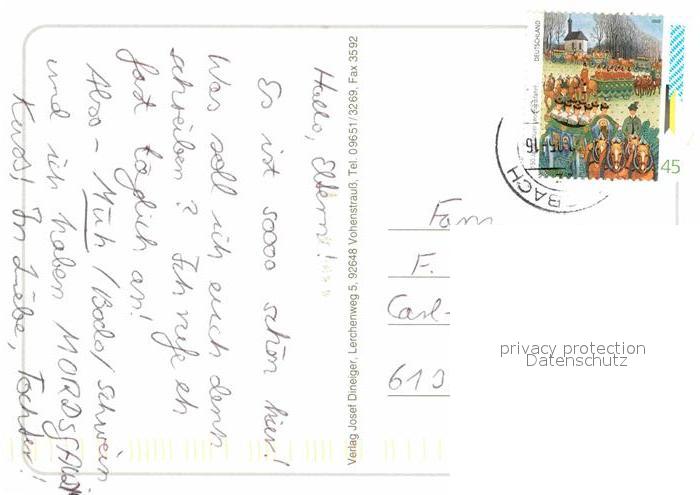 Hallo, Eltern!
Es ist soooo schön hier!
Was soll ich euch denn
schreiben? Ich rufe eh
fast täglich an!
Also - Muh / Bodo / Schwein
und ich haben MORDSGAUDI
Kuss! In Liebe, Tochter!
Verlag Josef Dineiger, Lerchenweg 5, 92648 Vohenstrauß, Tel. 09651/3269, Fax 3592
DEUTSCHLAND
45
BACH
Fam
F.
Carl-
613
privacy protection
Datenschutz